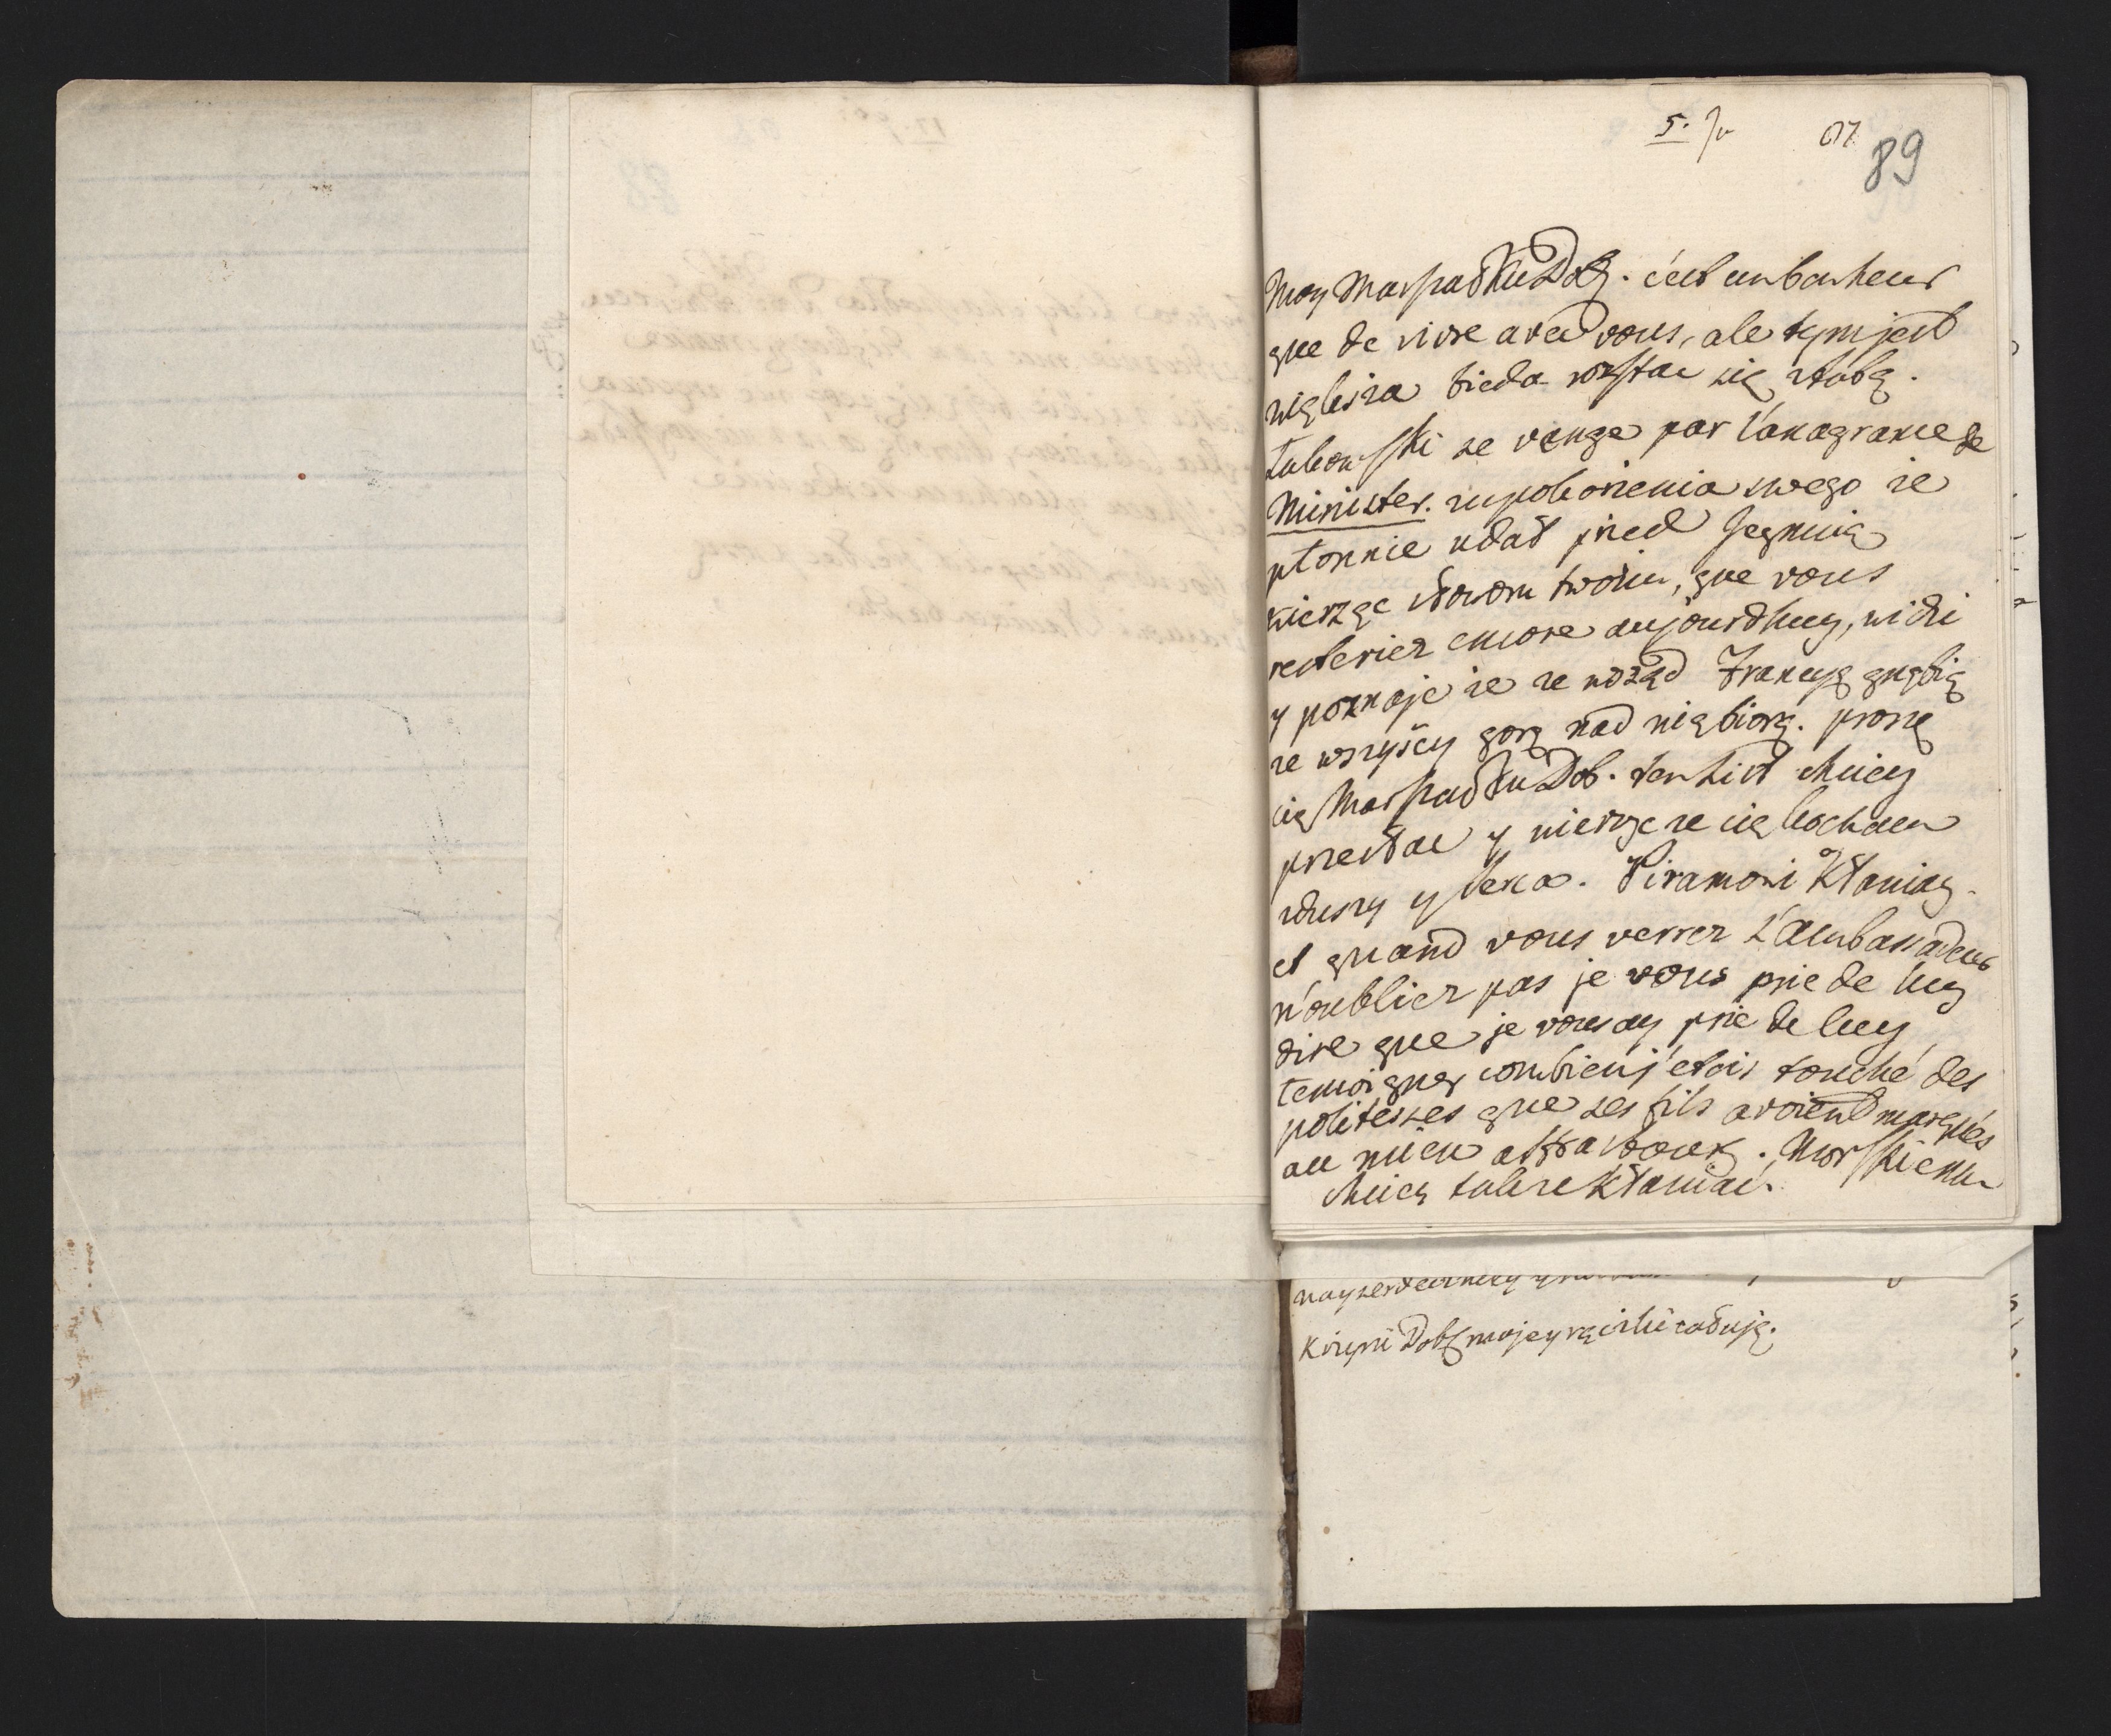 5. 67
89
Moy Marszałku Dob. c'est un bonheur
que de vivre avec vous, ale tym jest
większa bieda rozstac się stobą.
Łubowski se venge par l'anagrame de
Minister. zupołożenia swego ze
płonnie udał pried
wierząc słowom twoim, que vous
resteriez encore aujourdhuy, widzi
y poznaje ze ze wsząd Francyą gnębią
ze wszyscy gorę nad nią biorą. proszę
cię Marszałku Dob. ten List chciey
przesłac y wierzyc ze cię kocham
zduszy y serca. Piramowi Kłaniay
et quand vous verrez L'Ambassadeur
n'oubliez pas je vous prie de luy
dire que je vous ay prié de luy
temoigner combien j'etois touché des
politesses que ses fils avoient marqués
au mien a Strasbourg. Morskiemu
chciey także Kłaniać.
Kszyni Dob mojey rączki całuję.